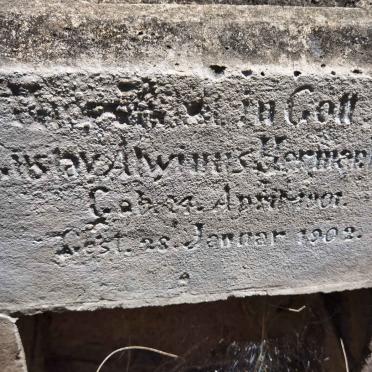 in Gott
Gustav Alwinus Herman
Geb. 24. April 1901.
Gest. 28. Januar 1902.